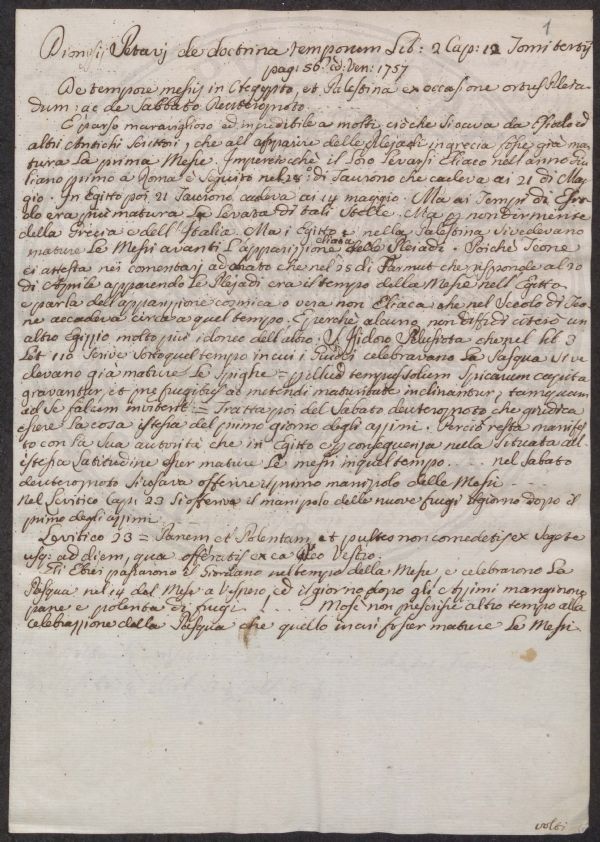 1
Dionisij Petavij de doctrina temporum Lib: 2 Cap: 12 Tomi tertij
pag: 56 ed: Ven: 1757
De tempore messis in Aegypto, et Palestina ex occasione ortus Pleia-
dum: ac de Sabbato Deuteroproto.
È parso maraviglioso ed incredibile a molti ciò che si cava da Esiodo ed
altri Antichi Scrittori, che all'apparire delle Plejadi in grecia fosse già ma-
tura la prima Messe. Imperciocchè il loro levarsi Eliaco nell'anno Giu-
liano primo a Roma è seguito nel 28: di Taurono che cadeva ai 21 di Mag-
gio. In Egitto poi 21 Taurono cadeva ai 14 maggio. Ma ai Tempi di Esio-
do era più matura la levata di tali Stelle. Ma
della Grecia e dell'Italia. Ma i Egitto e nella Palestina si vedevano
mature le Messi avanti l'apparizione Eliaca delle Pleiadi. Poichè Teone
ci attesta nei comentarj ad Arato che nel 25 di Farmut che risponde al 20
di Aprile apparendo le Plejadi era il tempo della Messe nell'Egitto
e parla dell'apparizione cosmica o vera non Eliaca che nel Secolo di Teo-
ne accadeva circa a quel tempo. E perchè alcuno non diffidi citerò un
altro Egizio molto più idoneo dell'altro. S. Isidoro Pelusiota che nel lib 3
Let 110 scrive sotto quel tempo in cui i Giudei celebravano la Pasqua si ve
devano già mature le Spighe = tempus solum spicarum capita
gravantur et prae frugibus ad metendi maturitate inclinantur, tamquam
ad se falcem invitent = Tratta poi del Sabato deuteroproto che giudica
essere la cosa istessa del primo giorno degli azimi. Perciò resta manifes-
to con la sua autorità che in Egitto e per conseguenza nella situata all'
istessa latitudine esser mature le messi in quel tempo. . . . nel Sabato
deuteroproto si usava offerire il primo manipolo delle Messi . . .
nel Levitico Cap: 23 si offeriva il manipolo delle nuove frugi il giorno dopo il
primo degli azzimi.
Levitico 23 = Panem et Polentam, et pultes non comedetis ex segete
usq: ad diem, qua offeratis ex ea Deo vestro.
Gli Ebrei passarono il Giordano nel tempo della Messe e celebrarono la
Pasqua nel 14 del Mese a Vespero, ed il giorno dopo gli azzimi mangiarono
pane e polenta di frugi ! . . . Mosè non prescrisse altro tempo alla
celebrazione della Pasqua che quello in cui fosser mature le Messi
volti